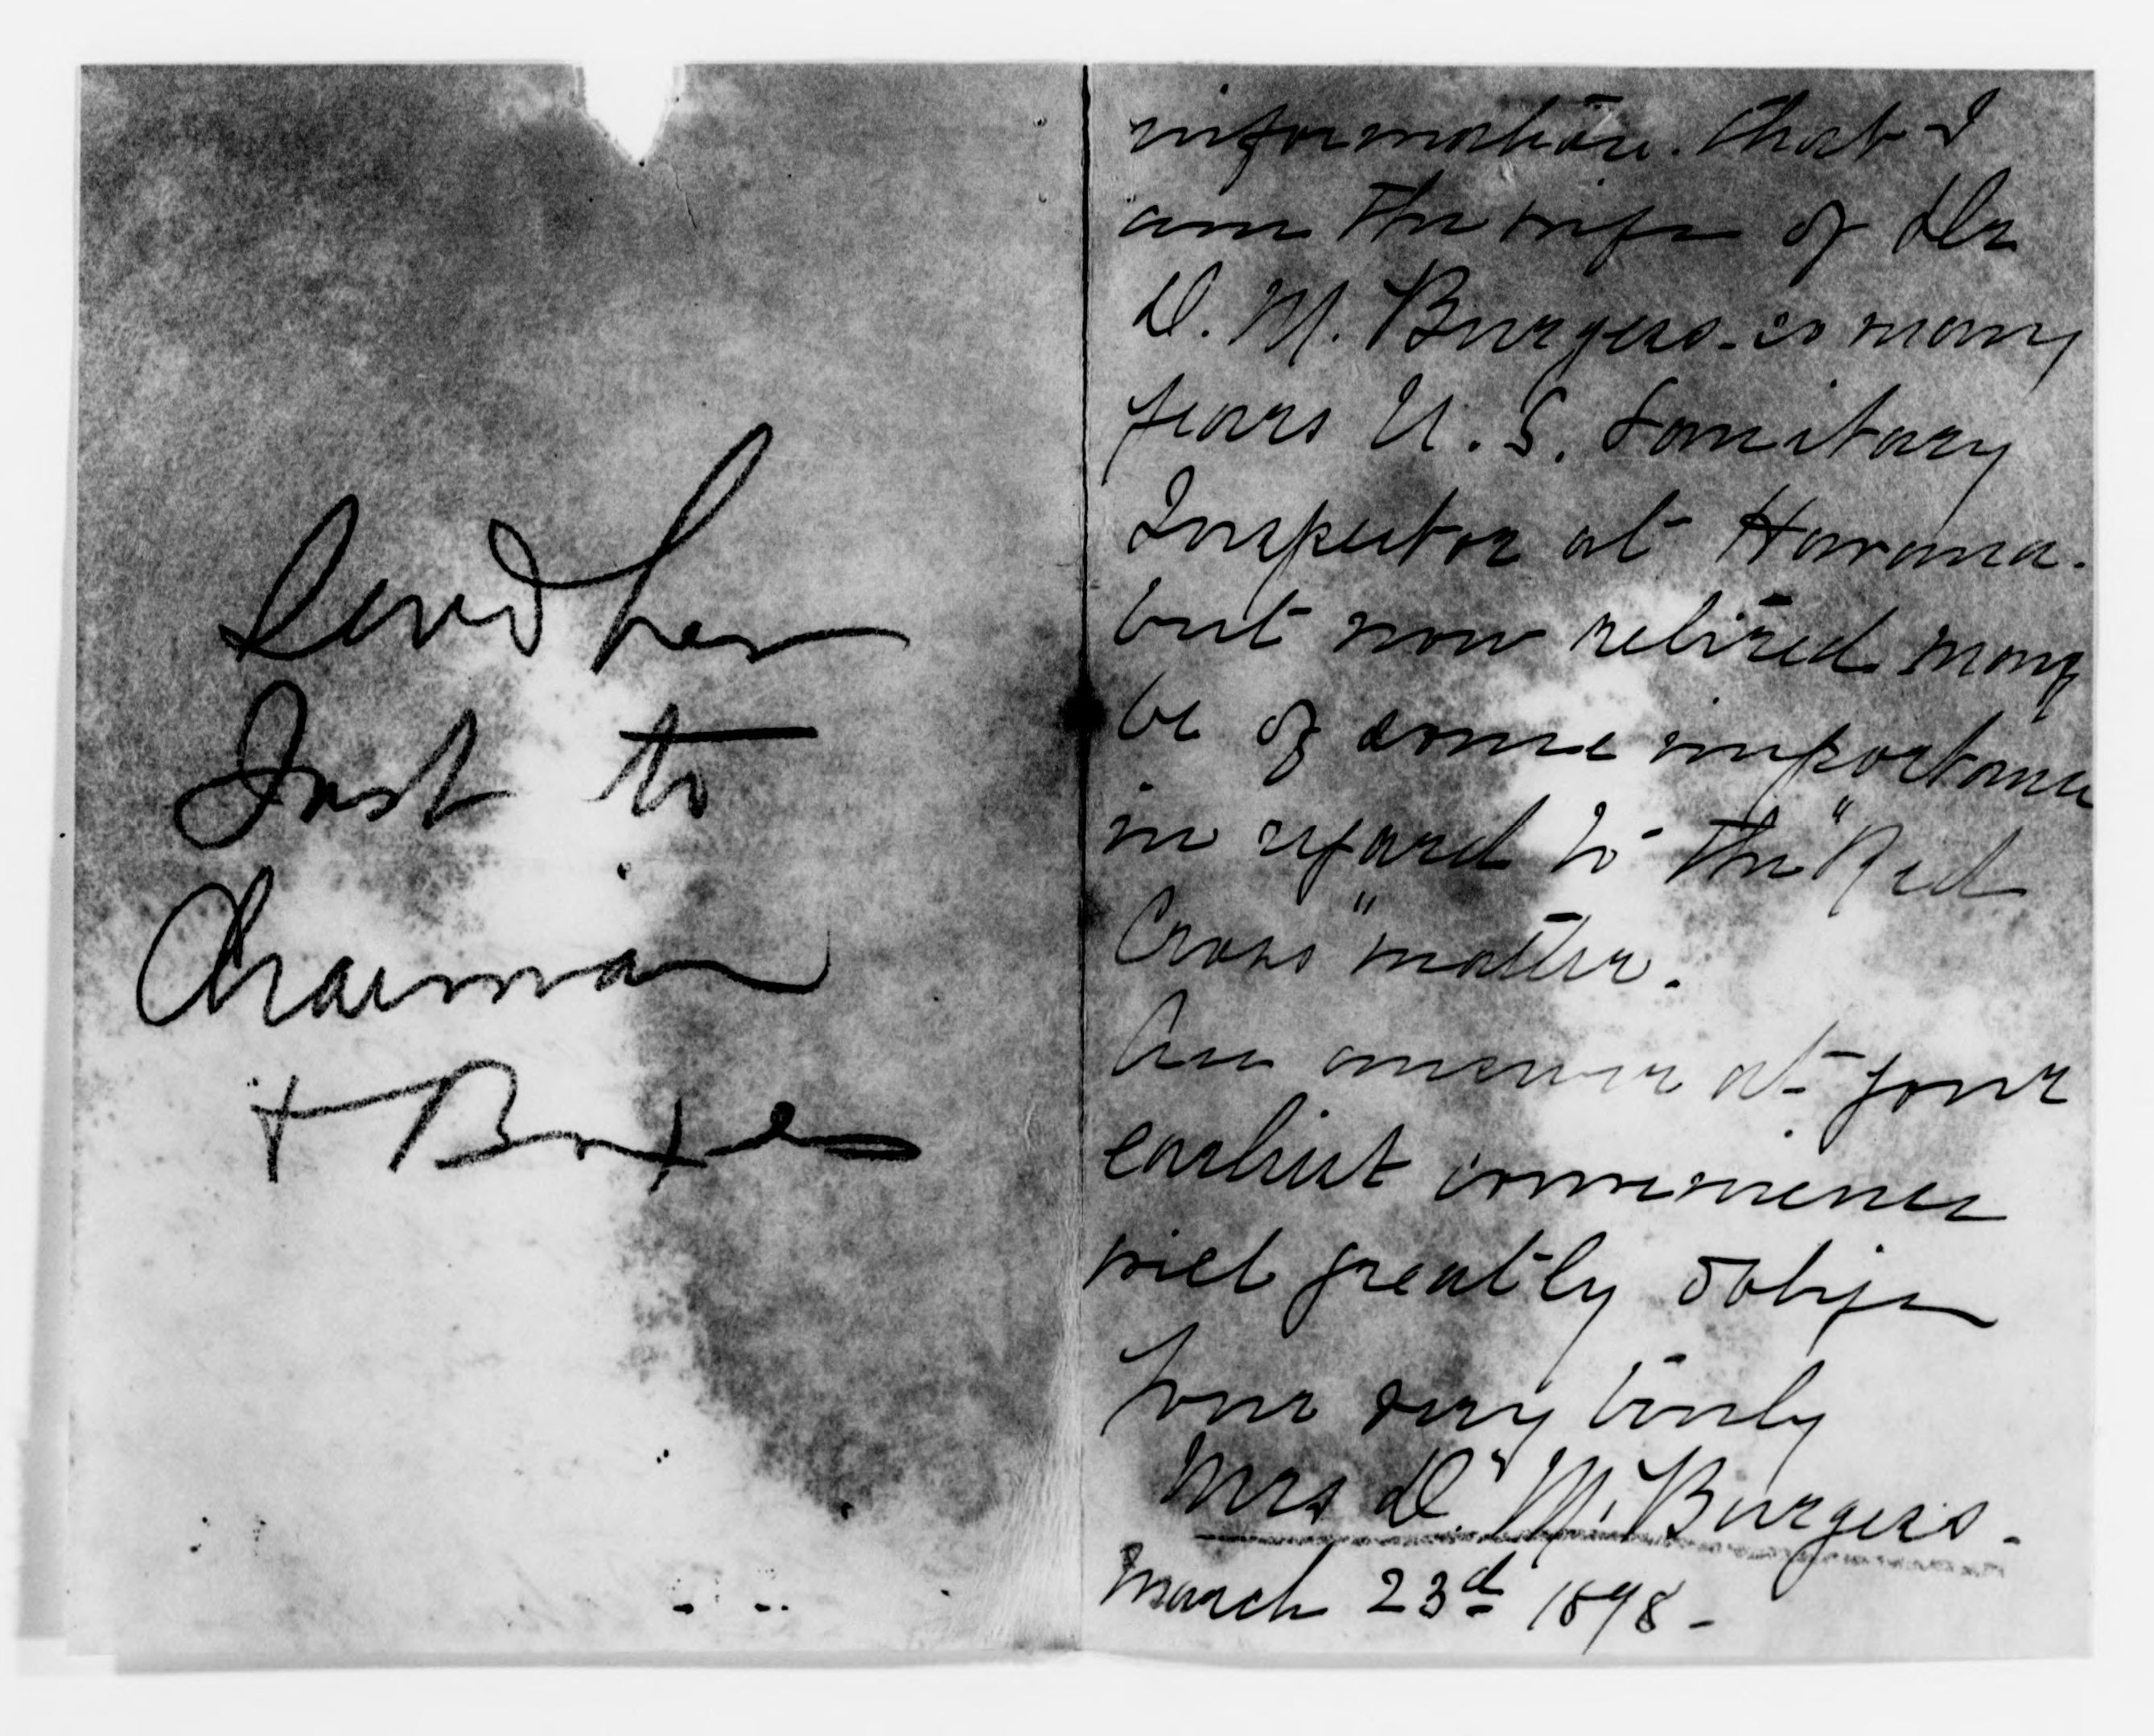 Send her
Inst to
Chairman
+ Boxes
information. that I
am the wife of Dr
D. M. Burgess. so many
years U. S. Sanitary
Inspector at Havana.
but now retired may
be of some importance
in regard to the "Red
Cross" matter.
An answer at your
earliest convenience
will greatly oblige
Your very truly
Mrs D. M. Burgess.
March 23d 1898-